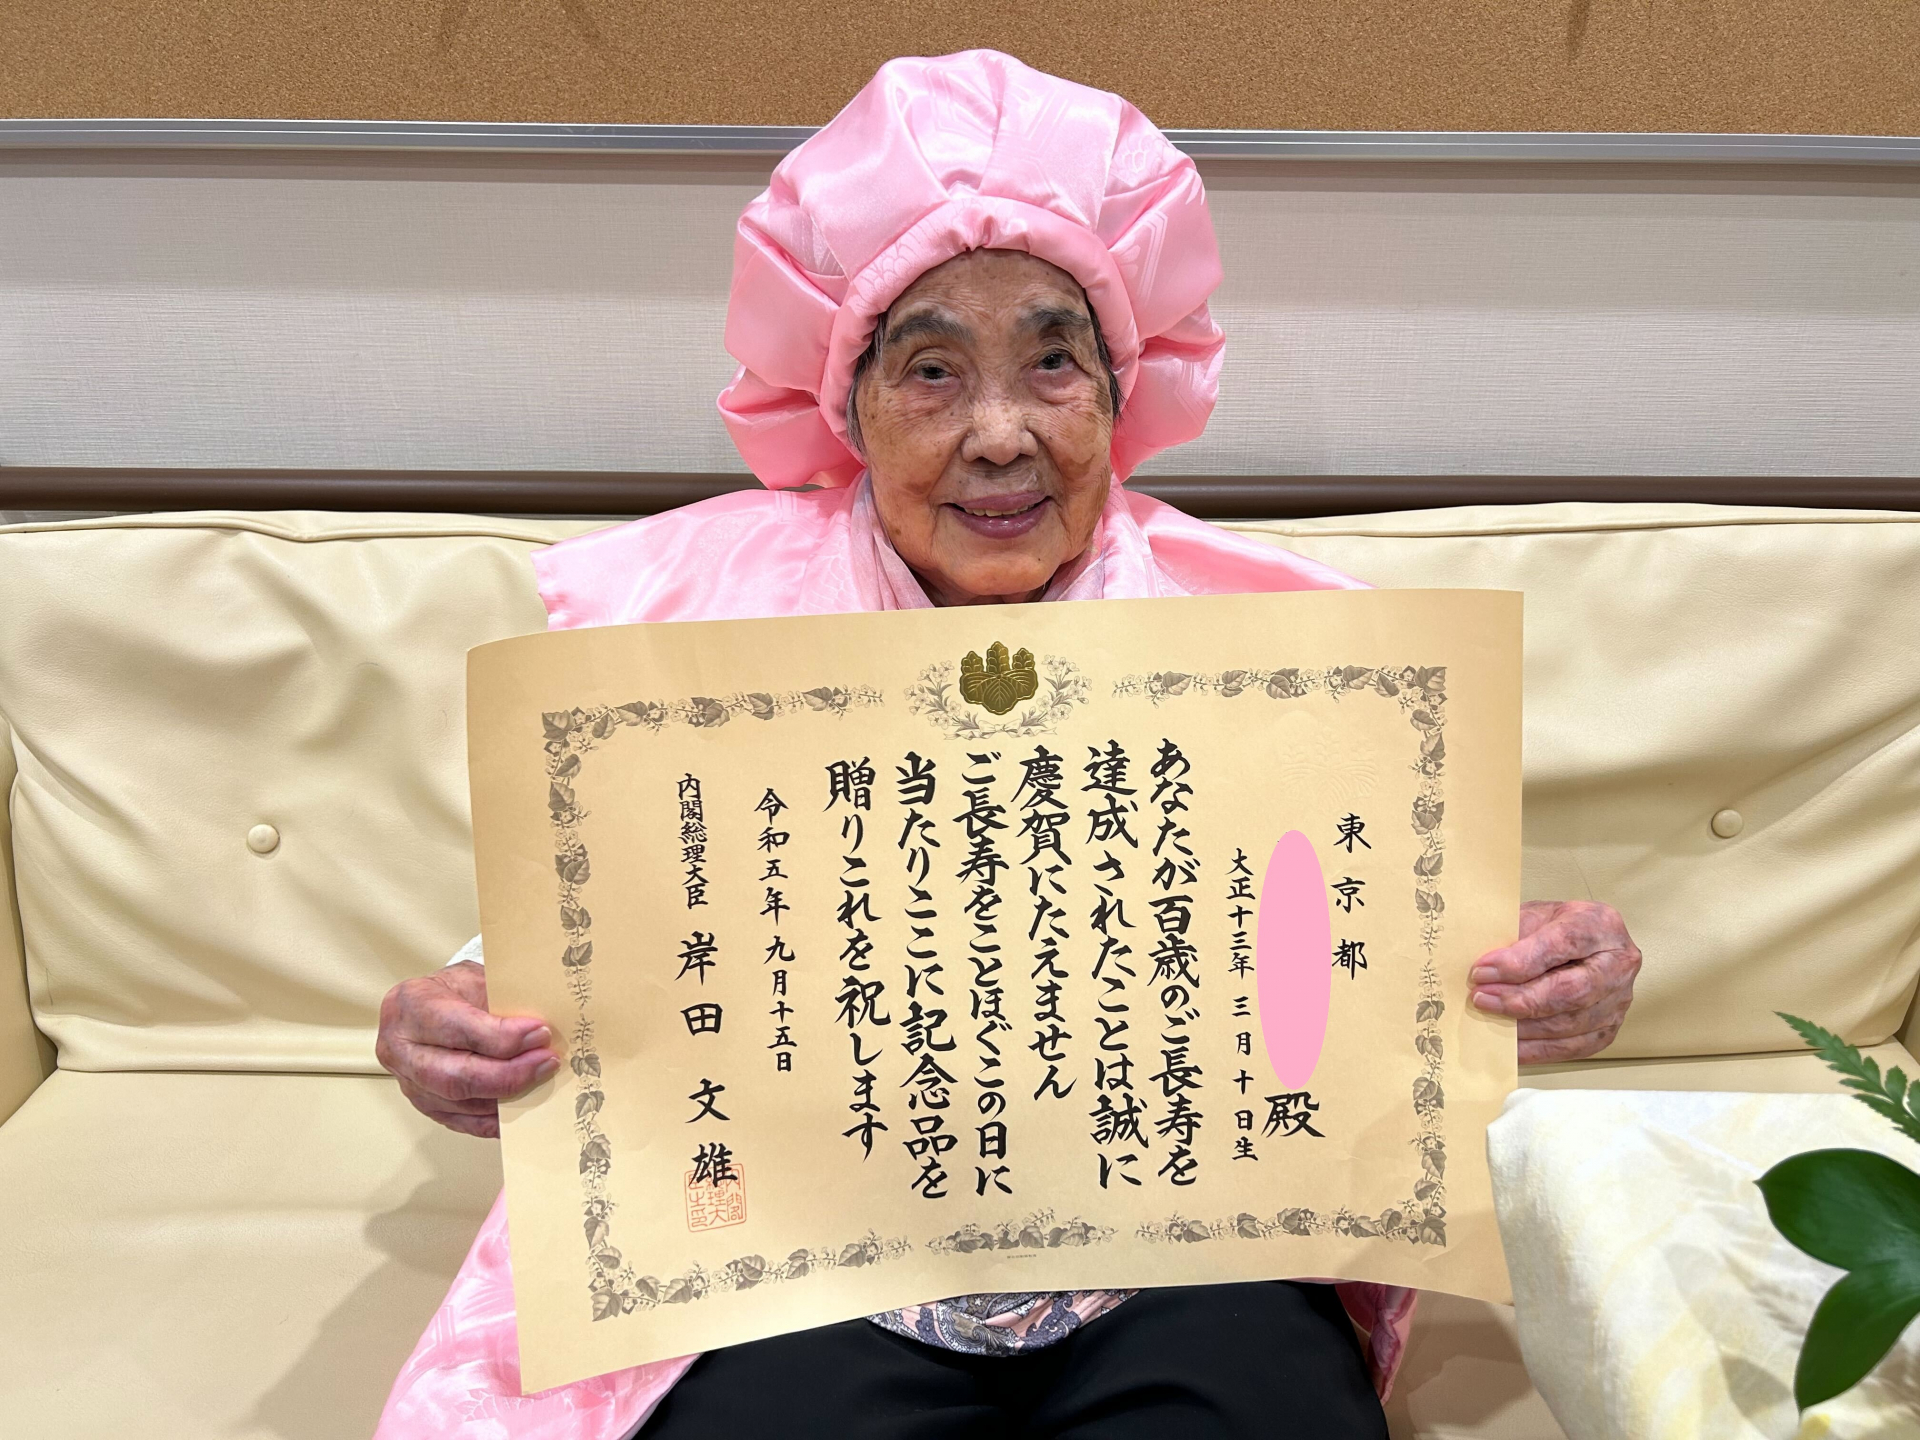 東京都
殿
大正十三年三月十日生
あなたが百歳のご長寿を
達成されたことは誠に
慶賀にたえません
ご長寿をことほぐこの日に
当たりここに記念品を
贈りこれを祝します
令和五年九月十五日
内閣総理大臣 岸田文雄